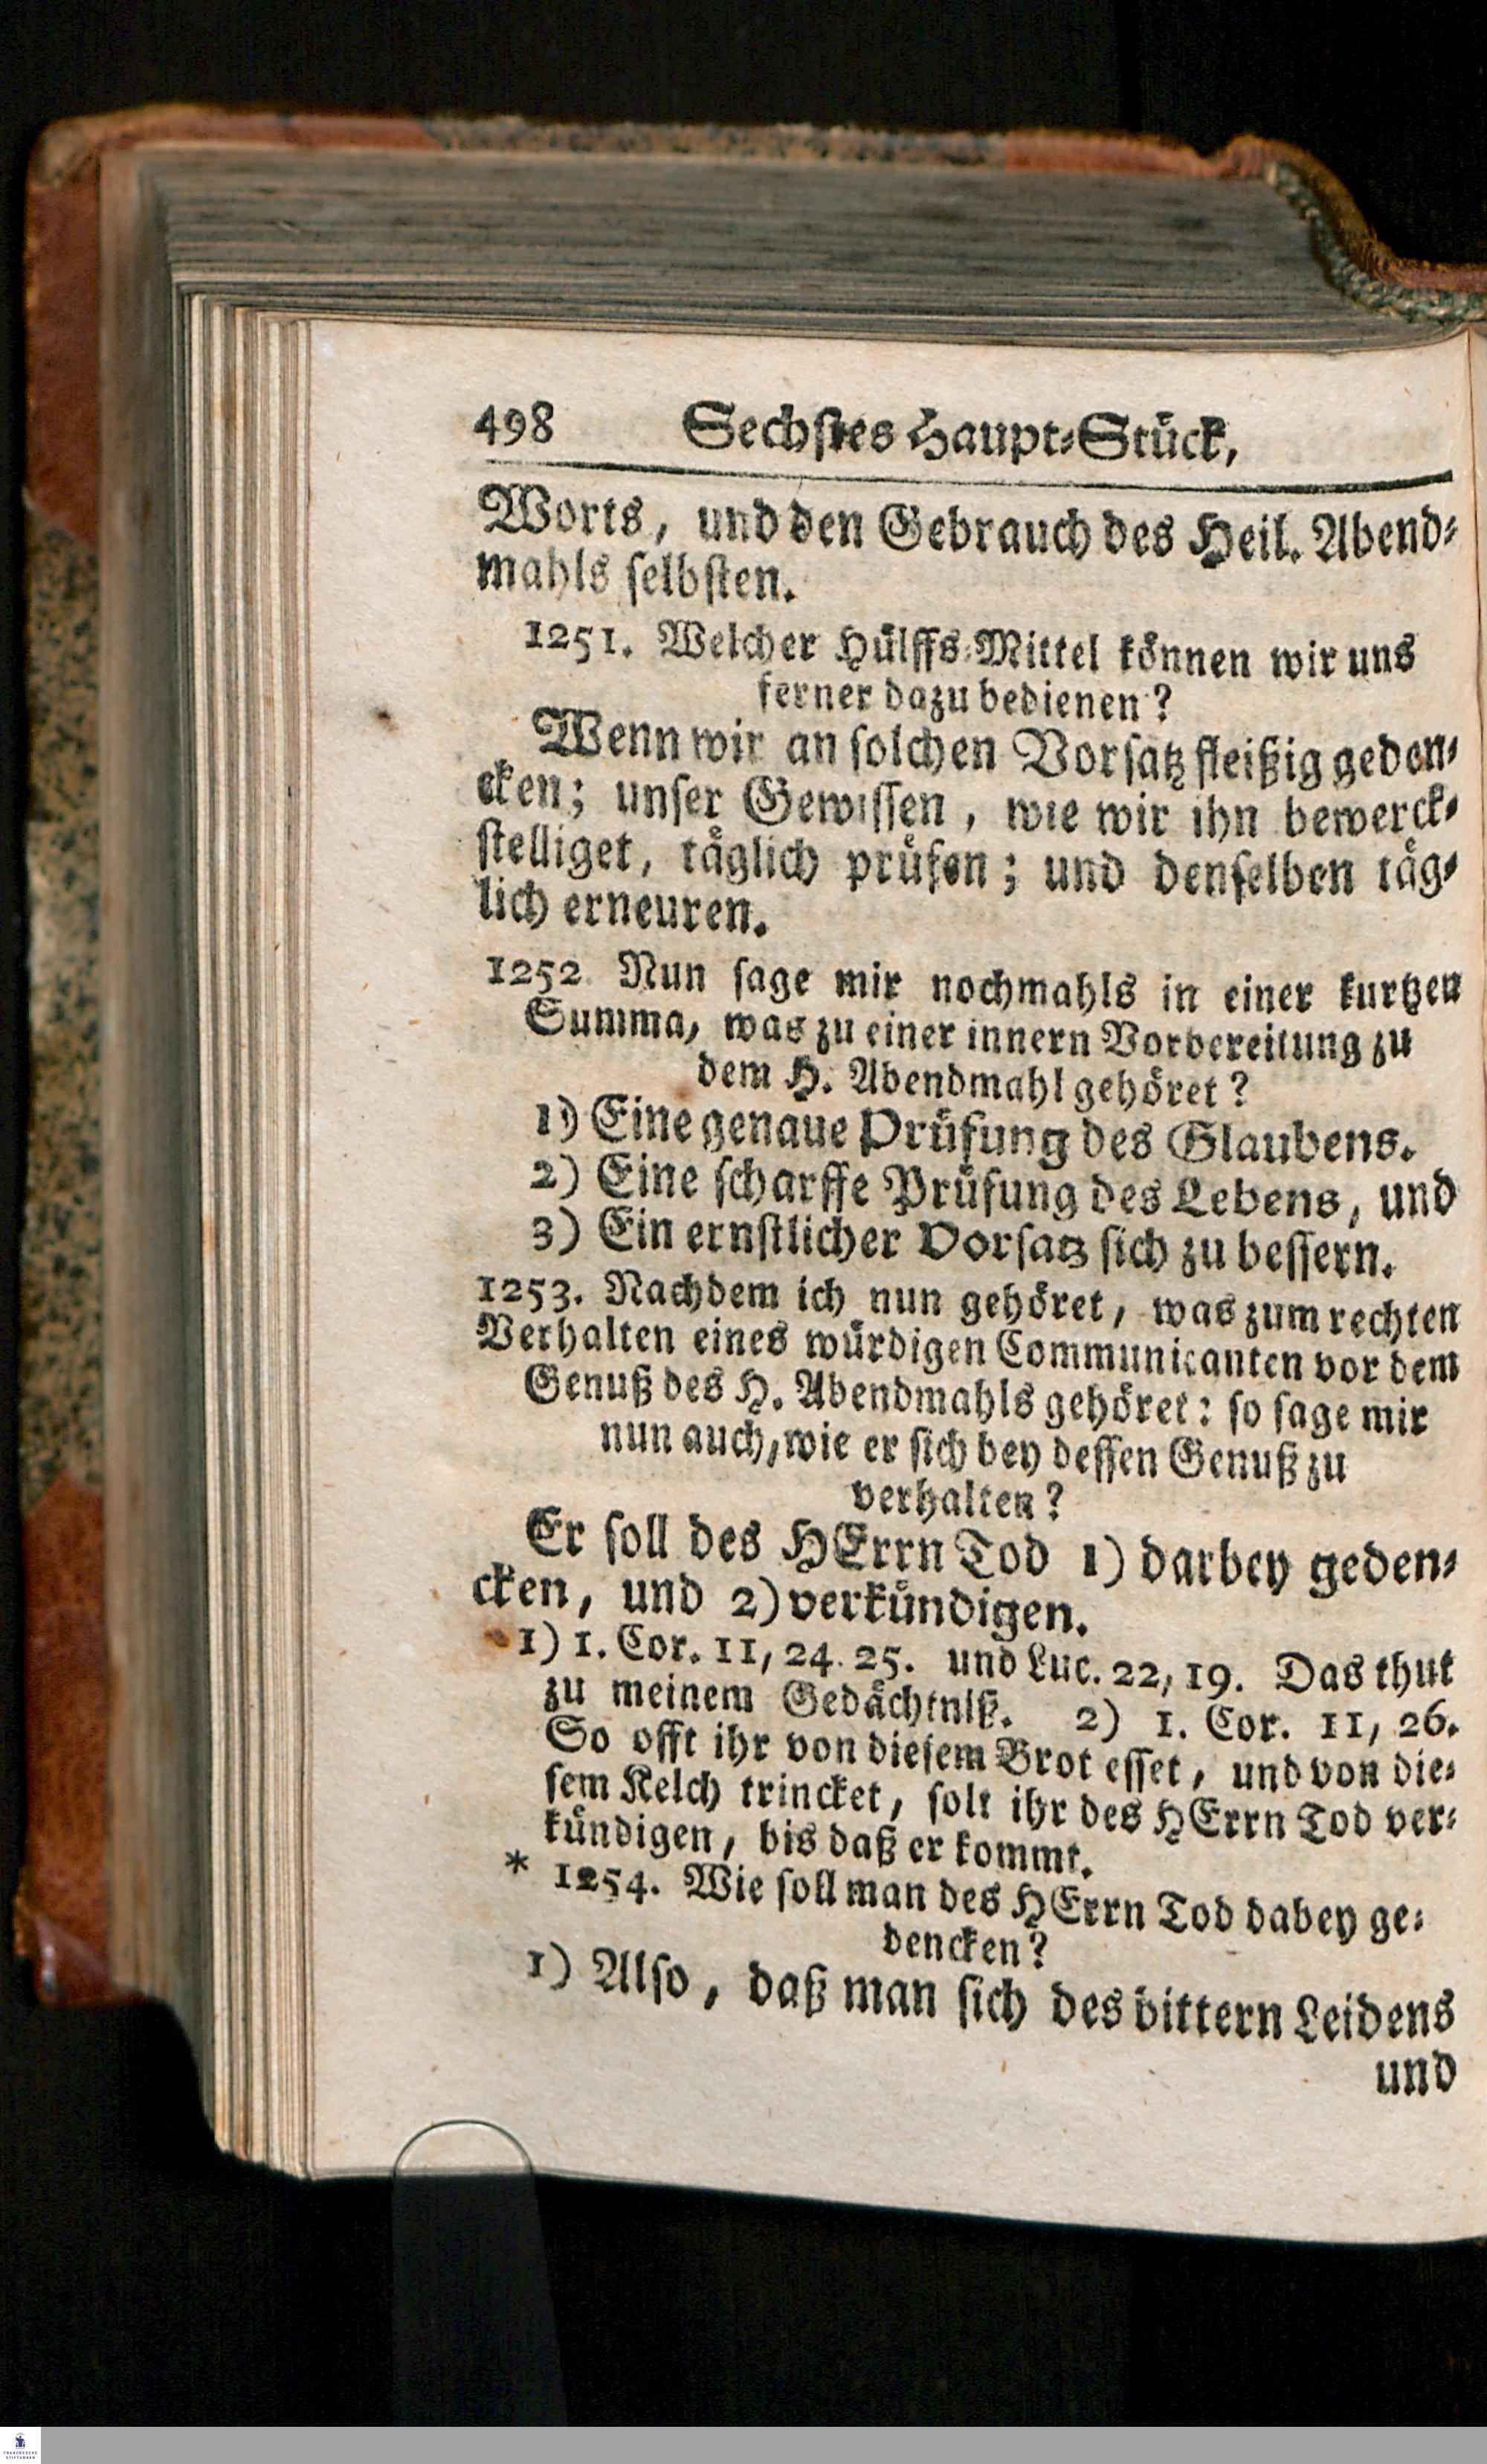 498 Sechstes Haupt-Stück,
Worts, und den Gebrauch des Heil. Abend-
mahls selbsten.
1251. Welcher Hülffs-Mittel können wir uns
ferner dazu bedienen?
Wenn wir an solchen Vorsatz fleißig geden-
cken; unser Gewissen, wie wir ihn bewerck-
stelliget, täglich prüfen; und denselben täg-
lich erneuren.
1252 Nun sage mir nochmahls in einer kurtzen
Summa, was zu einer innern Vorbereitung zu
dem H. Abendmahl gehöret?
1) Eine genaue Prüfung des Glaubens.
2) Eine scharffe Prüfung des Lebens, und
3) Ein ernstlicher Vorsatz sich zu bessern.
1253. Nachdem ich nun gehöret, was zum rechten
Verhalten eines würdigen Communicanten vor dem
Genuß des H. Abendmahls gehöret: so sage mir
nun auch, wie er sich bey dessen Genuß zu
verhalten?
Er soll des HErrn Tod 1) darbey geden-
cken, und 2) verkündigen.
1) 1. Cor. 11, 24. 25. und Luc. 22, 19. Das thut
zu meinem Gedächtniß. 2) 1. Cor. 11, 26.
So offt ihr von diesem Brot esset, und von die-
sem Kelch trincket, solt ihr des HErrn Tod ver-
kündigen, bis daß er kommt.
* 1254. Wie soll man des HErrn Tod dabey ge-
dencken?
1) Also, daß man sich des bittern Leidens
und
FRANCKESCHE
STIFTUNGEN